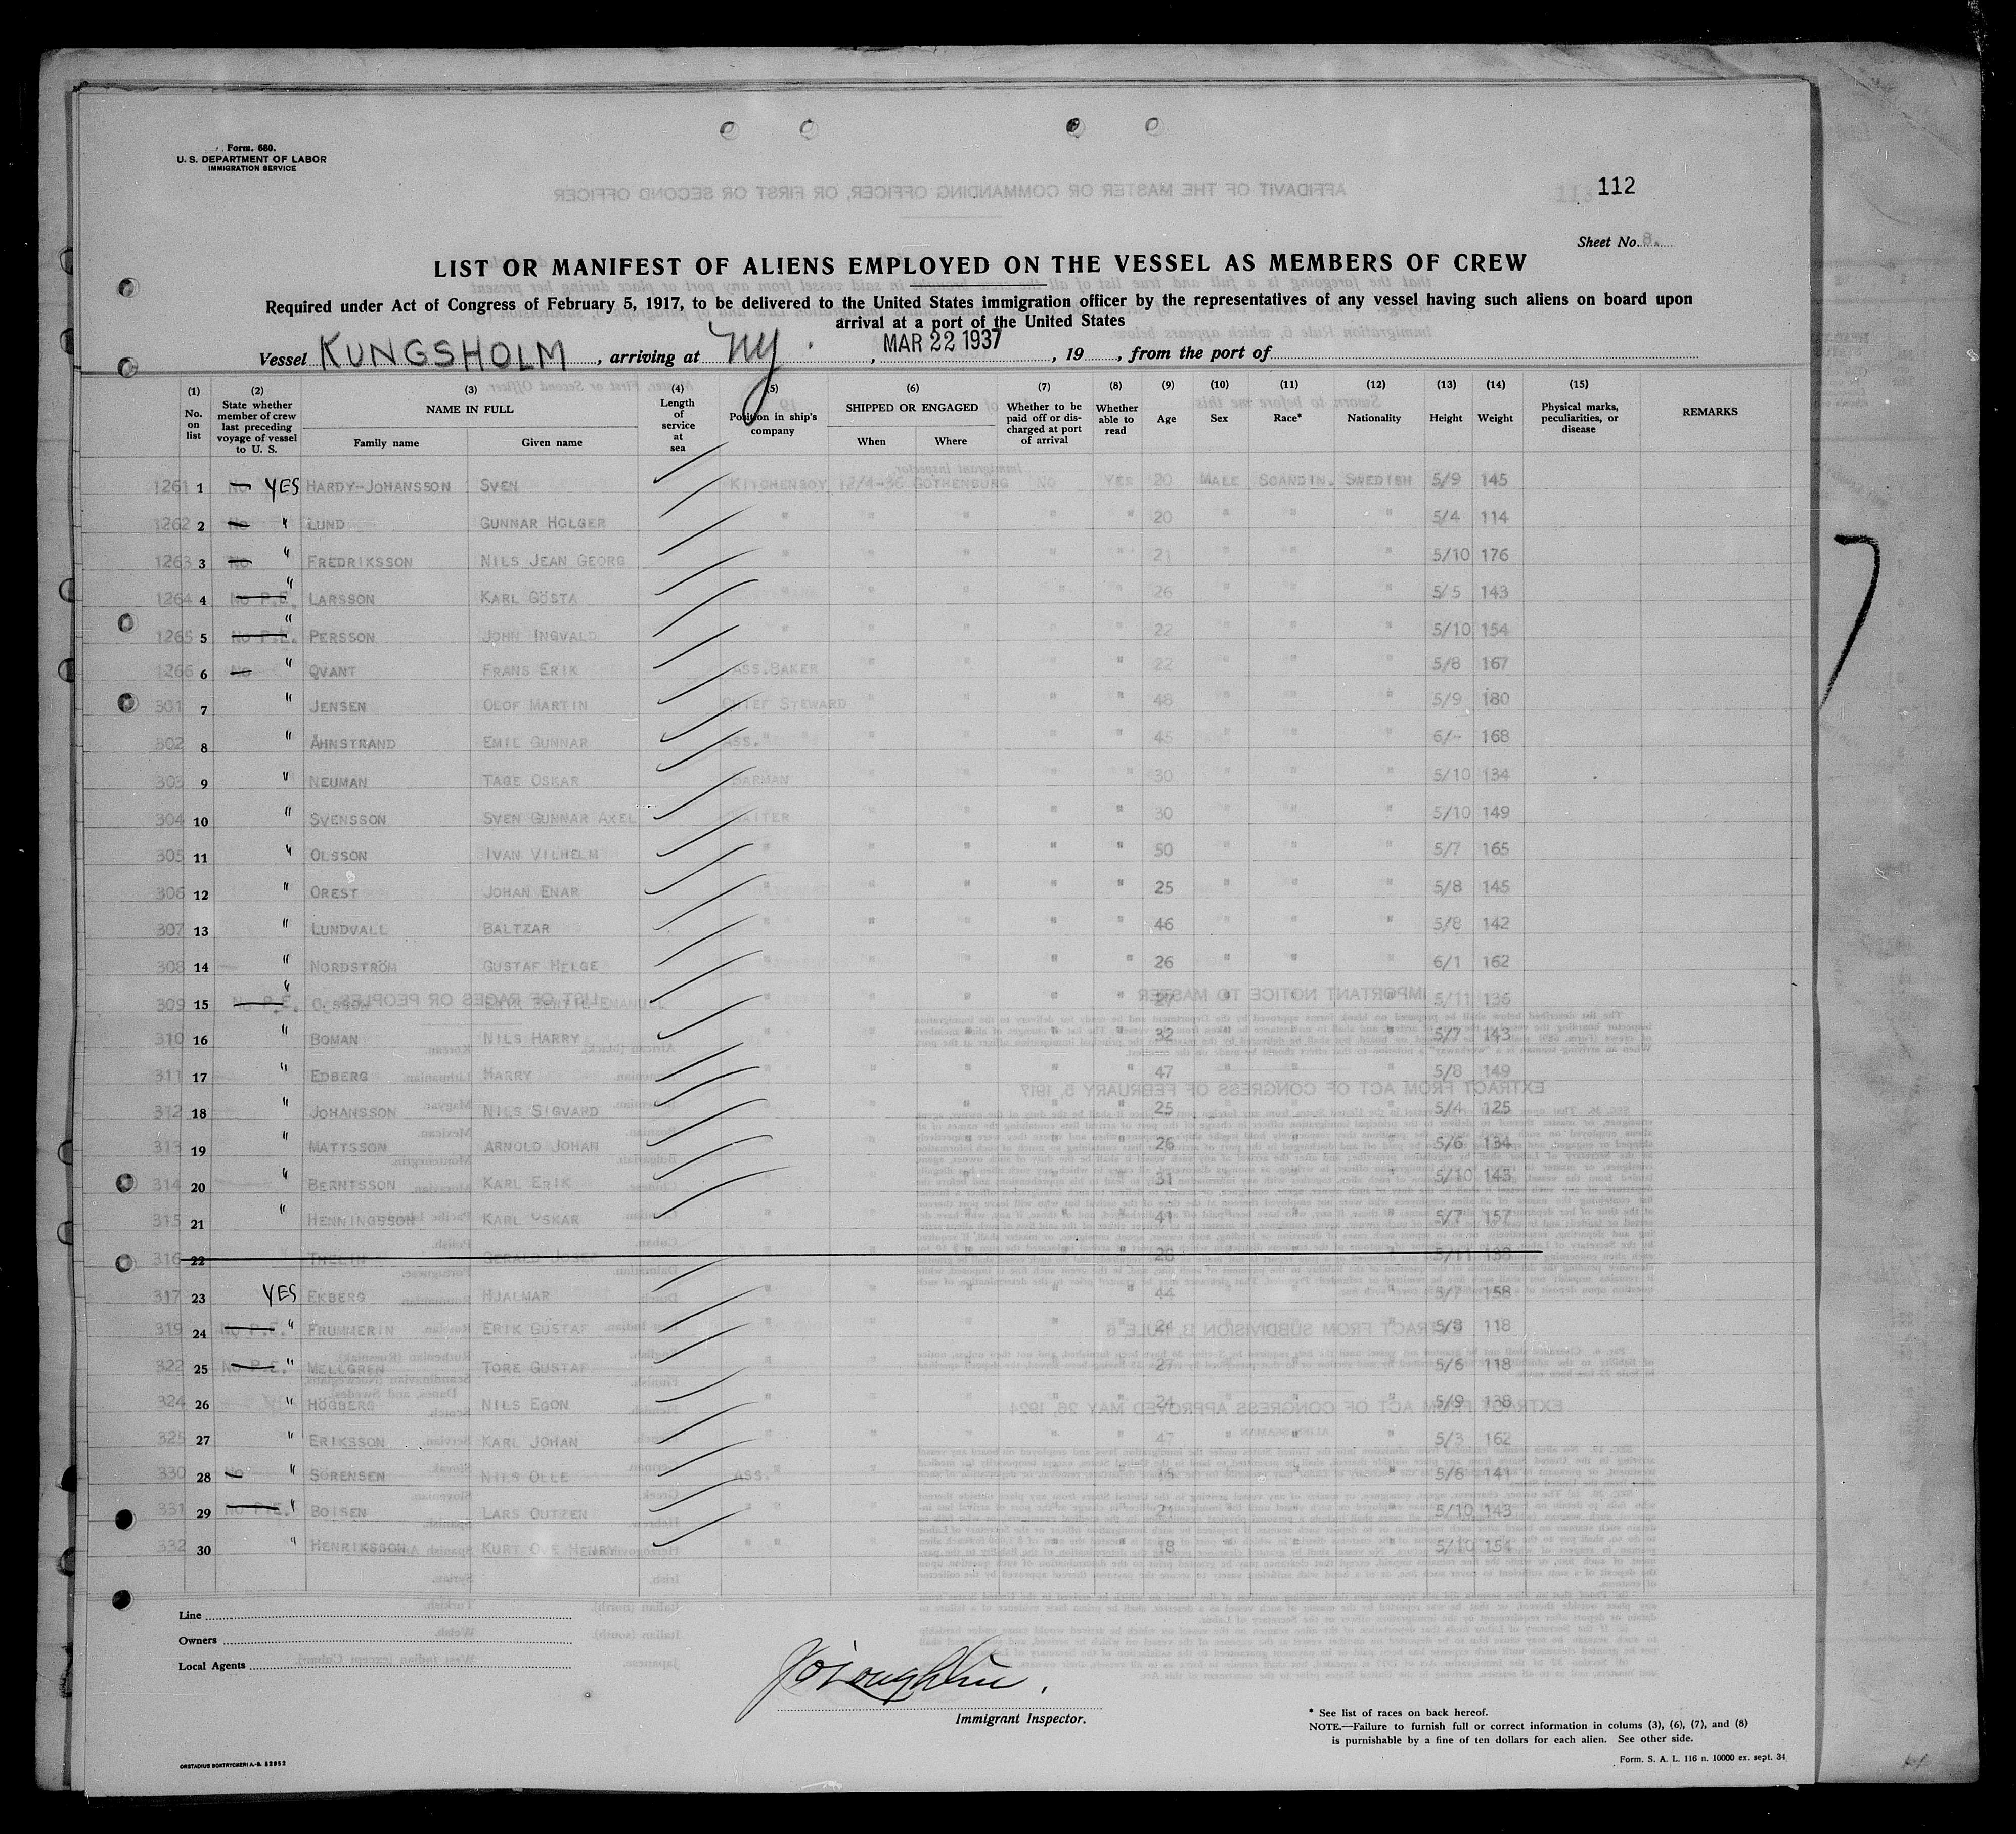 Form. 680.
U. S. DEPARTMENT OF LABOR
IMMIGRATION SERVICE
112
Sheet No. 8.
LIST OR MANIFEST OF ALIENS EMPLOYED ON THE VESSEL AS MEMBERS OF CREW
Required under Act of Congress of February 5, 1917, to be delivered to the United States immigration officer by the representatives of any vessel having such aliens on board upon
arrival at a port of the United States
Vessel KUNGSHOLM, arriving at NY. , MAR 22 1937, 19 , from the port of
(1) (2) (3) (4) (5) (6) (7) (8) (9) (10) (11) (12) (13) (14) (15)
No. on list | State whether member of crew last preceding voyage of vessel to U. S. | NAME IN FULL | Family name | Given name | Length of service at sea | Position in ship's company | SHIPPED OR ENGAGED | When | Where | Whether to be paid off or discharged at port of arrival | Whether able to read | Age | Sex | Race* | Nationality | Height | Weight | Physical marks, peculiarities, or disease | REMARKS
1261 1 No YES HARDY-JOHANSSON SVEN KITCHENBOY 12/4-36 GOTHENBURG NO YES 20 MALE SCANDIN. SWEDISH 5/9 145
1262 2 No " LUND GUNNAR HOLGER " " " " " 20 " " " 5/4 114
1263 3 No " FREDRIKSSON NILS JEAN GEORG " " " " " 21 " " " 5/10 176
1264 4 No P.E. " LARSSON KARL GÖSTA " " " " " 26 " " " 5/5 143
1265 5 No P.E. " PERSSON JOHN INGVALD " " " " " 22 " " " 5/10 154
1266 6 No " QVANT FRANS ERIK ASS.BAKER " " " " 22 " " " 5/8 167
301 7 " JENSEN OLOF MARTIN CHIEF STEWARD " " " " 48 " " " 5/9 180
302 8 " ÅHNSTRAND EMIL GUNNAR ASS. " " " " " 45 " " " 6/- 168
303 9 " NEUMAN TAGE OSKAR BARMAN " " " " 30 " " " 5/10 134
304 10 " SVENSSON SVEN GUNNAR AXEL WAITER " " " " 30 " " " 5/10 149
305 11 " OLSSON IVAN VILHELM " " " " " 50 " " " 5/7 165
306 12 " OREST JOHAN ENAR " " " " " 25 " " " 5/8 145
307 13 " LUNDVALL BALTZAR " " " " " 46 " " " 5/8 142
308 14 " NORDSTRÖM GUSTAF HELGE " " " " " 26 " " " 6/1 162
309 15 No P.E. " OLSSON ERIK BERTIL EMANUEL " " " " " 27 " " " 5/11 136
310 16 " BOMAN NILS HARRY " " " " " 32 " " " 5/7 143
311 17 " EDBERG HARRY " " " " " 47 " " " 5/8 149
312 18 " JOHANSSON NILS SIGVARD " " " " " 25 " " " 5/4 125
313 19 " MATTSSON ARNOLD JOHAN " " " " " 26 " " " 5/6 134
314 20 " BERNTSSON KARL ERIK " " " " " 31 " " " 5/10 143
315 21 " HENNINGSSON KARL OSKAR " " " " " 41 " " " 5/7 157
316 22 THELIN GERALD JOSEF " " " " " 26 " " " 5/11 138
317 23 YES EKBERG HJALMAR " " " " " 44 " " " 5/7 158
319 24 No P.E. " FRUMMERIN ERIK GUSTAF " " " " " 24 " " " 5/8 118
322 25 No P.E. " MELLGREN TORE GUSTAF " " " " " 27 " " " 5/6 118
324 26 " HÖGBERG NILS EGON " " " " " 24 " " " 5/9 138
325 27 " ERIKSSON KARL JOHAN " " " " " 47 " " " 5/3 162
330 28 No " SÖRENSEN NILS OLLE ASS. " " " " " " " " 5/6 141
331 29 No P.E. " BOISEN LARS OUTZEN " " " " " " 21 " " " 5/10 143
332 30 " HENRIKSSON KURT OVE HENRY " " " " " " 18 " " " 5/10 154
Line
Owners
Local Agents
Immigrant Inspector.
* See list of races on back hereof.
NOTE.—Failure to furnish full or correct information in colums (3), (6), (7), and (8)
is punishable by a fine of ten dollars for each alien. See other side.
Form. S. A. L. 116 n. 10000 ex. sept. 34
ORSTADIUS BOKTRYCKERI A.-B. 52852